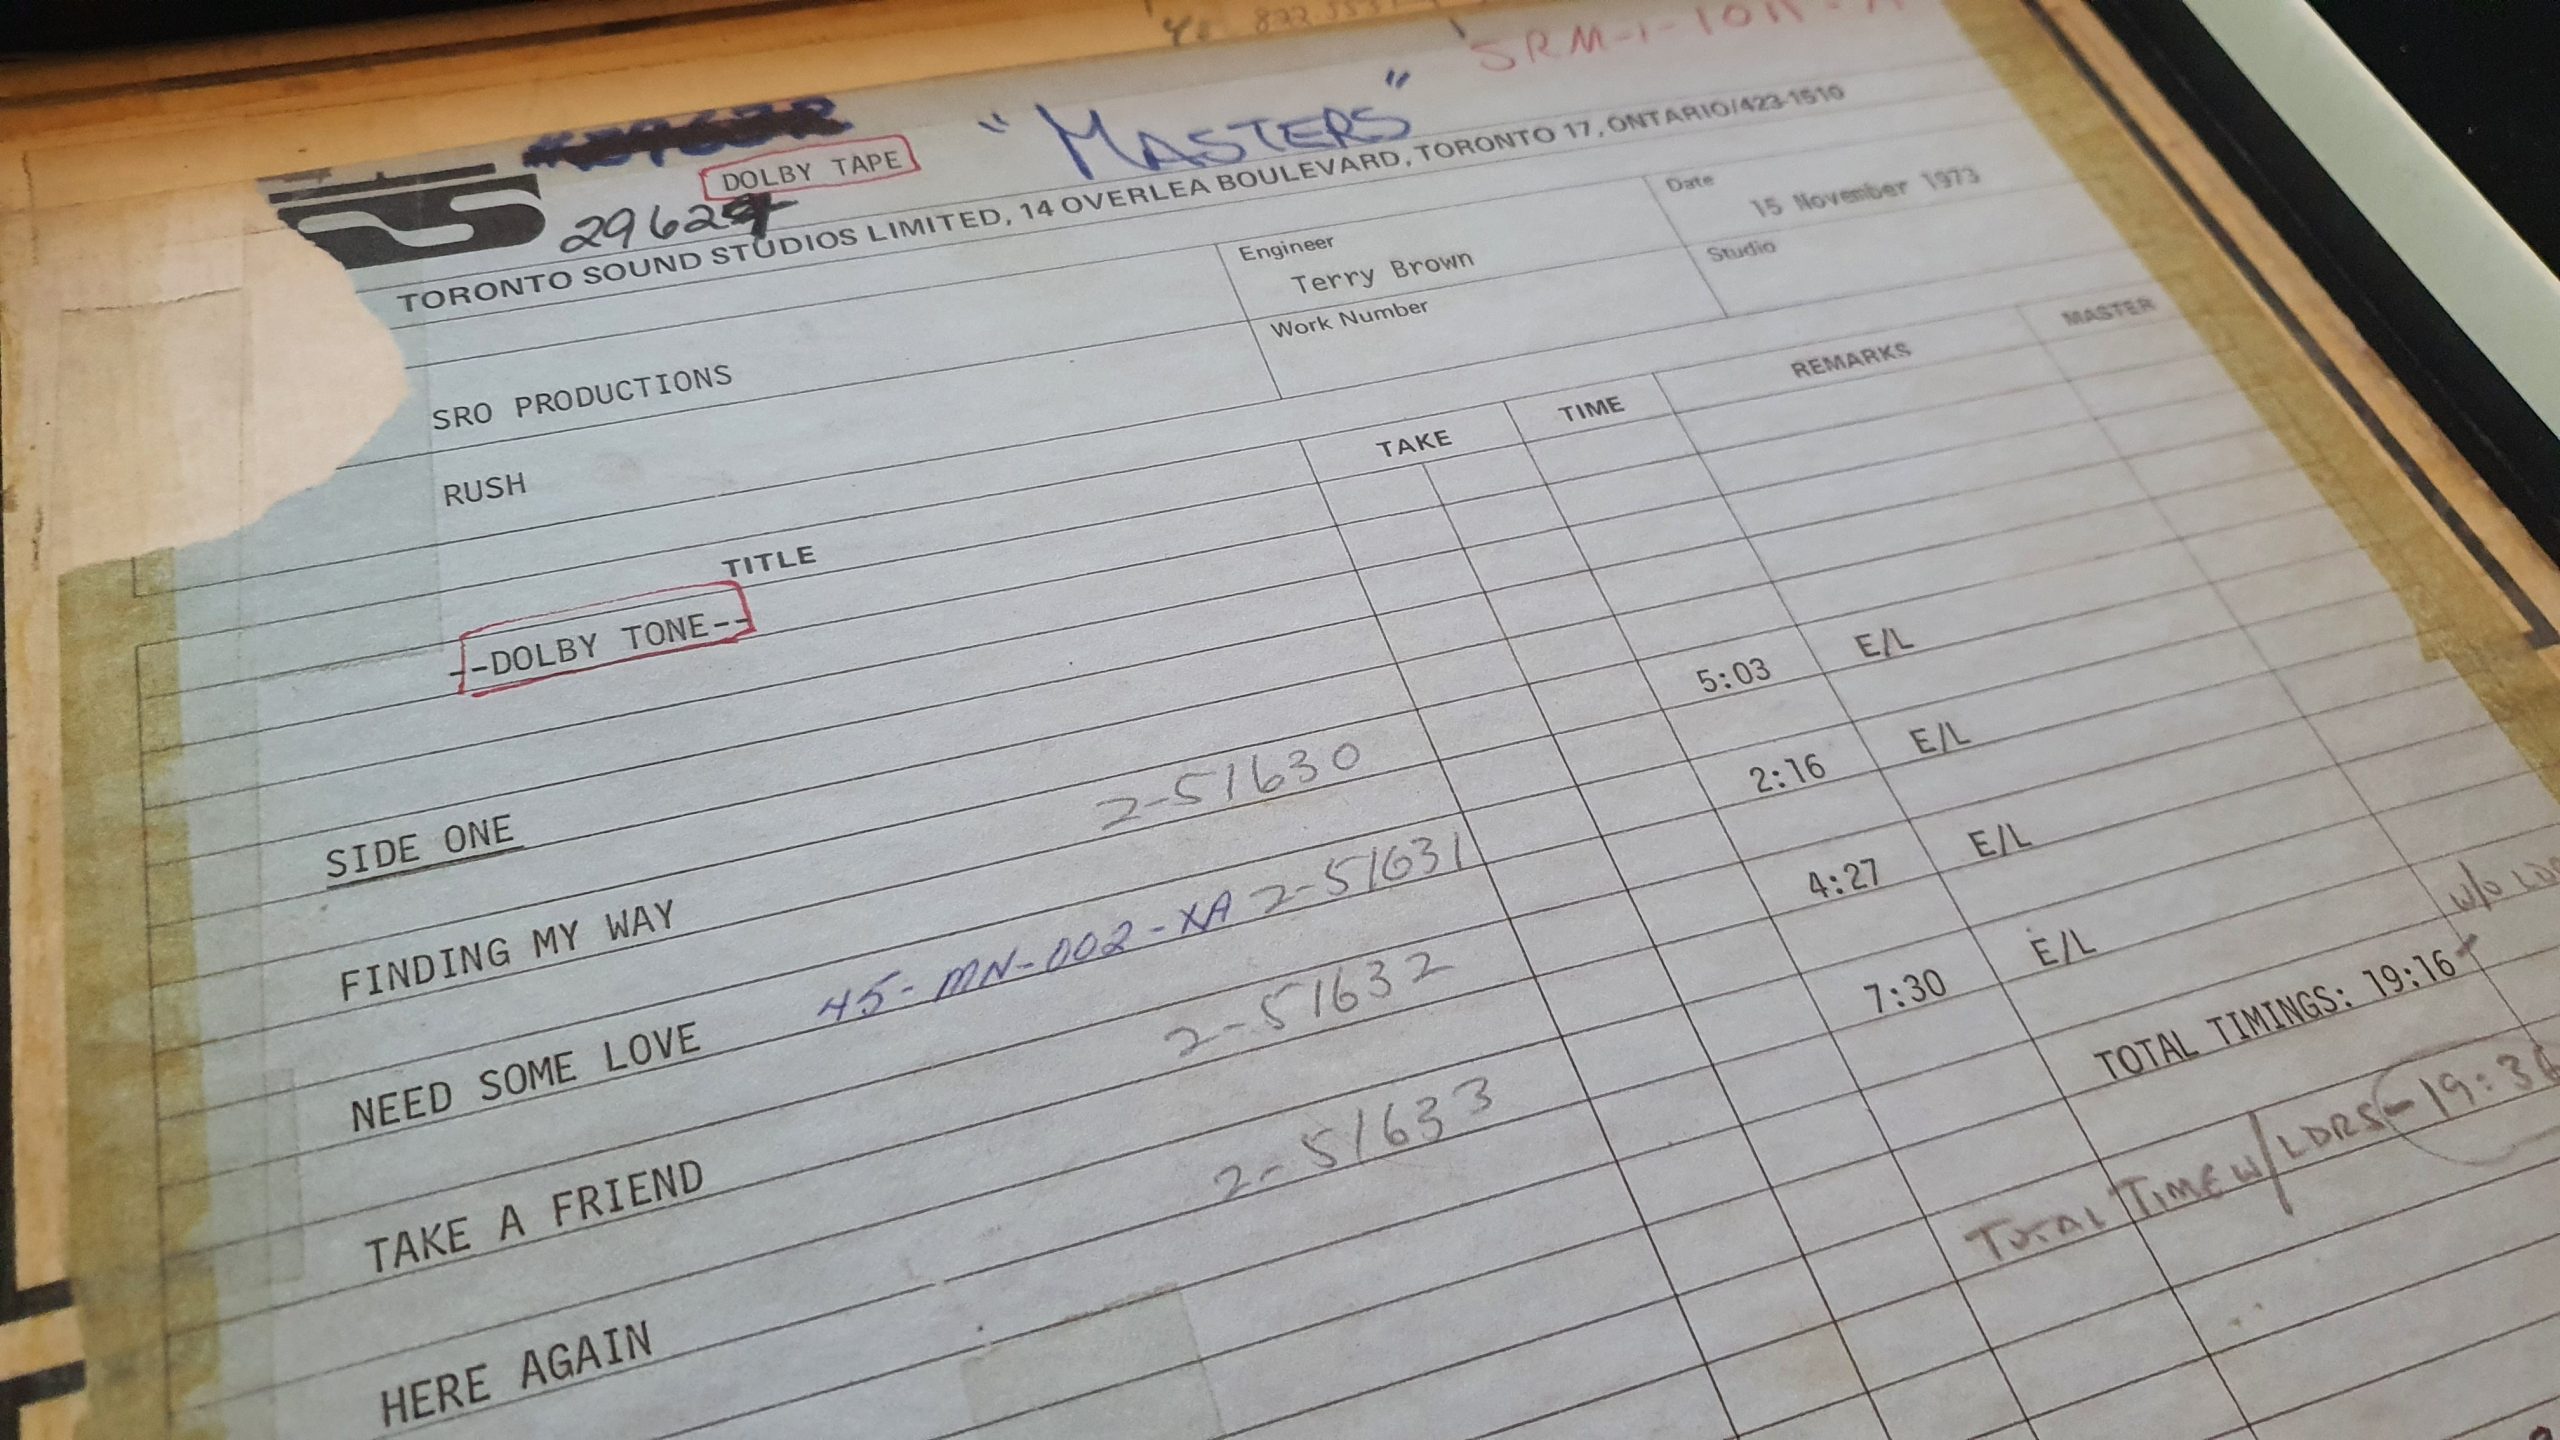 SRM-1-1011-A
"MASTERS"
DOLBY TAPE
29624
TORONTO SOUND STUDIOS LIMITED, 14 OVERLEA BOULEVARD, TORONTO 17, ONTARIO/423-1510
Engineer
Terry Brown
Date
15 November 1973
Work Number
Studio
SRO PRODUCTIONS
RUSH
TITLE TAKE TIME REMARKS MASTER
--DOLBY TONE--
SIDE ONE
FINDING MY WAY 2-51630 5:03 E/L
NEED SOME LOVE 45-MN-002-XA 2-51631 2:16 E/L
TAKE A FRIEND 2-51632 4:27 E/L
HERE AGAIN 2-51633 7:30 E/L
w/o
TOTAL TIMINGS: 19:16
TOTAL TIME W/LDRS-